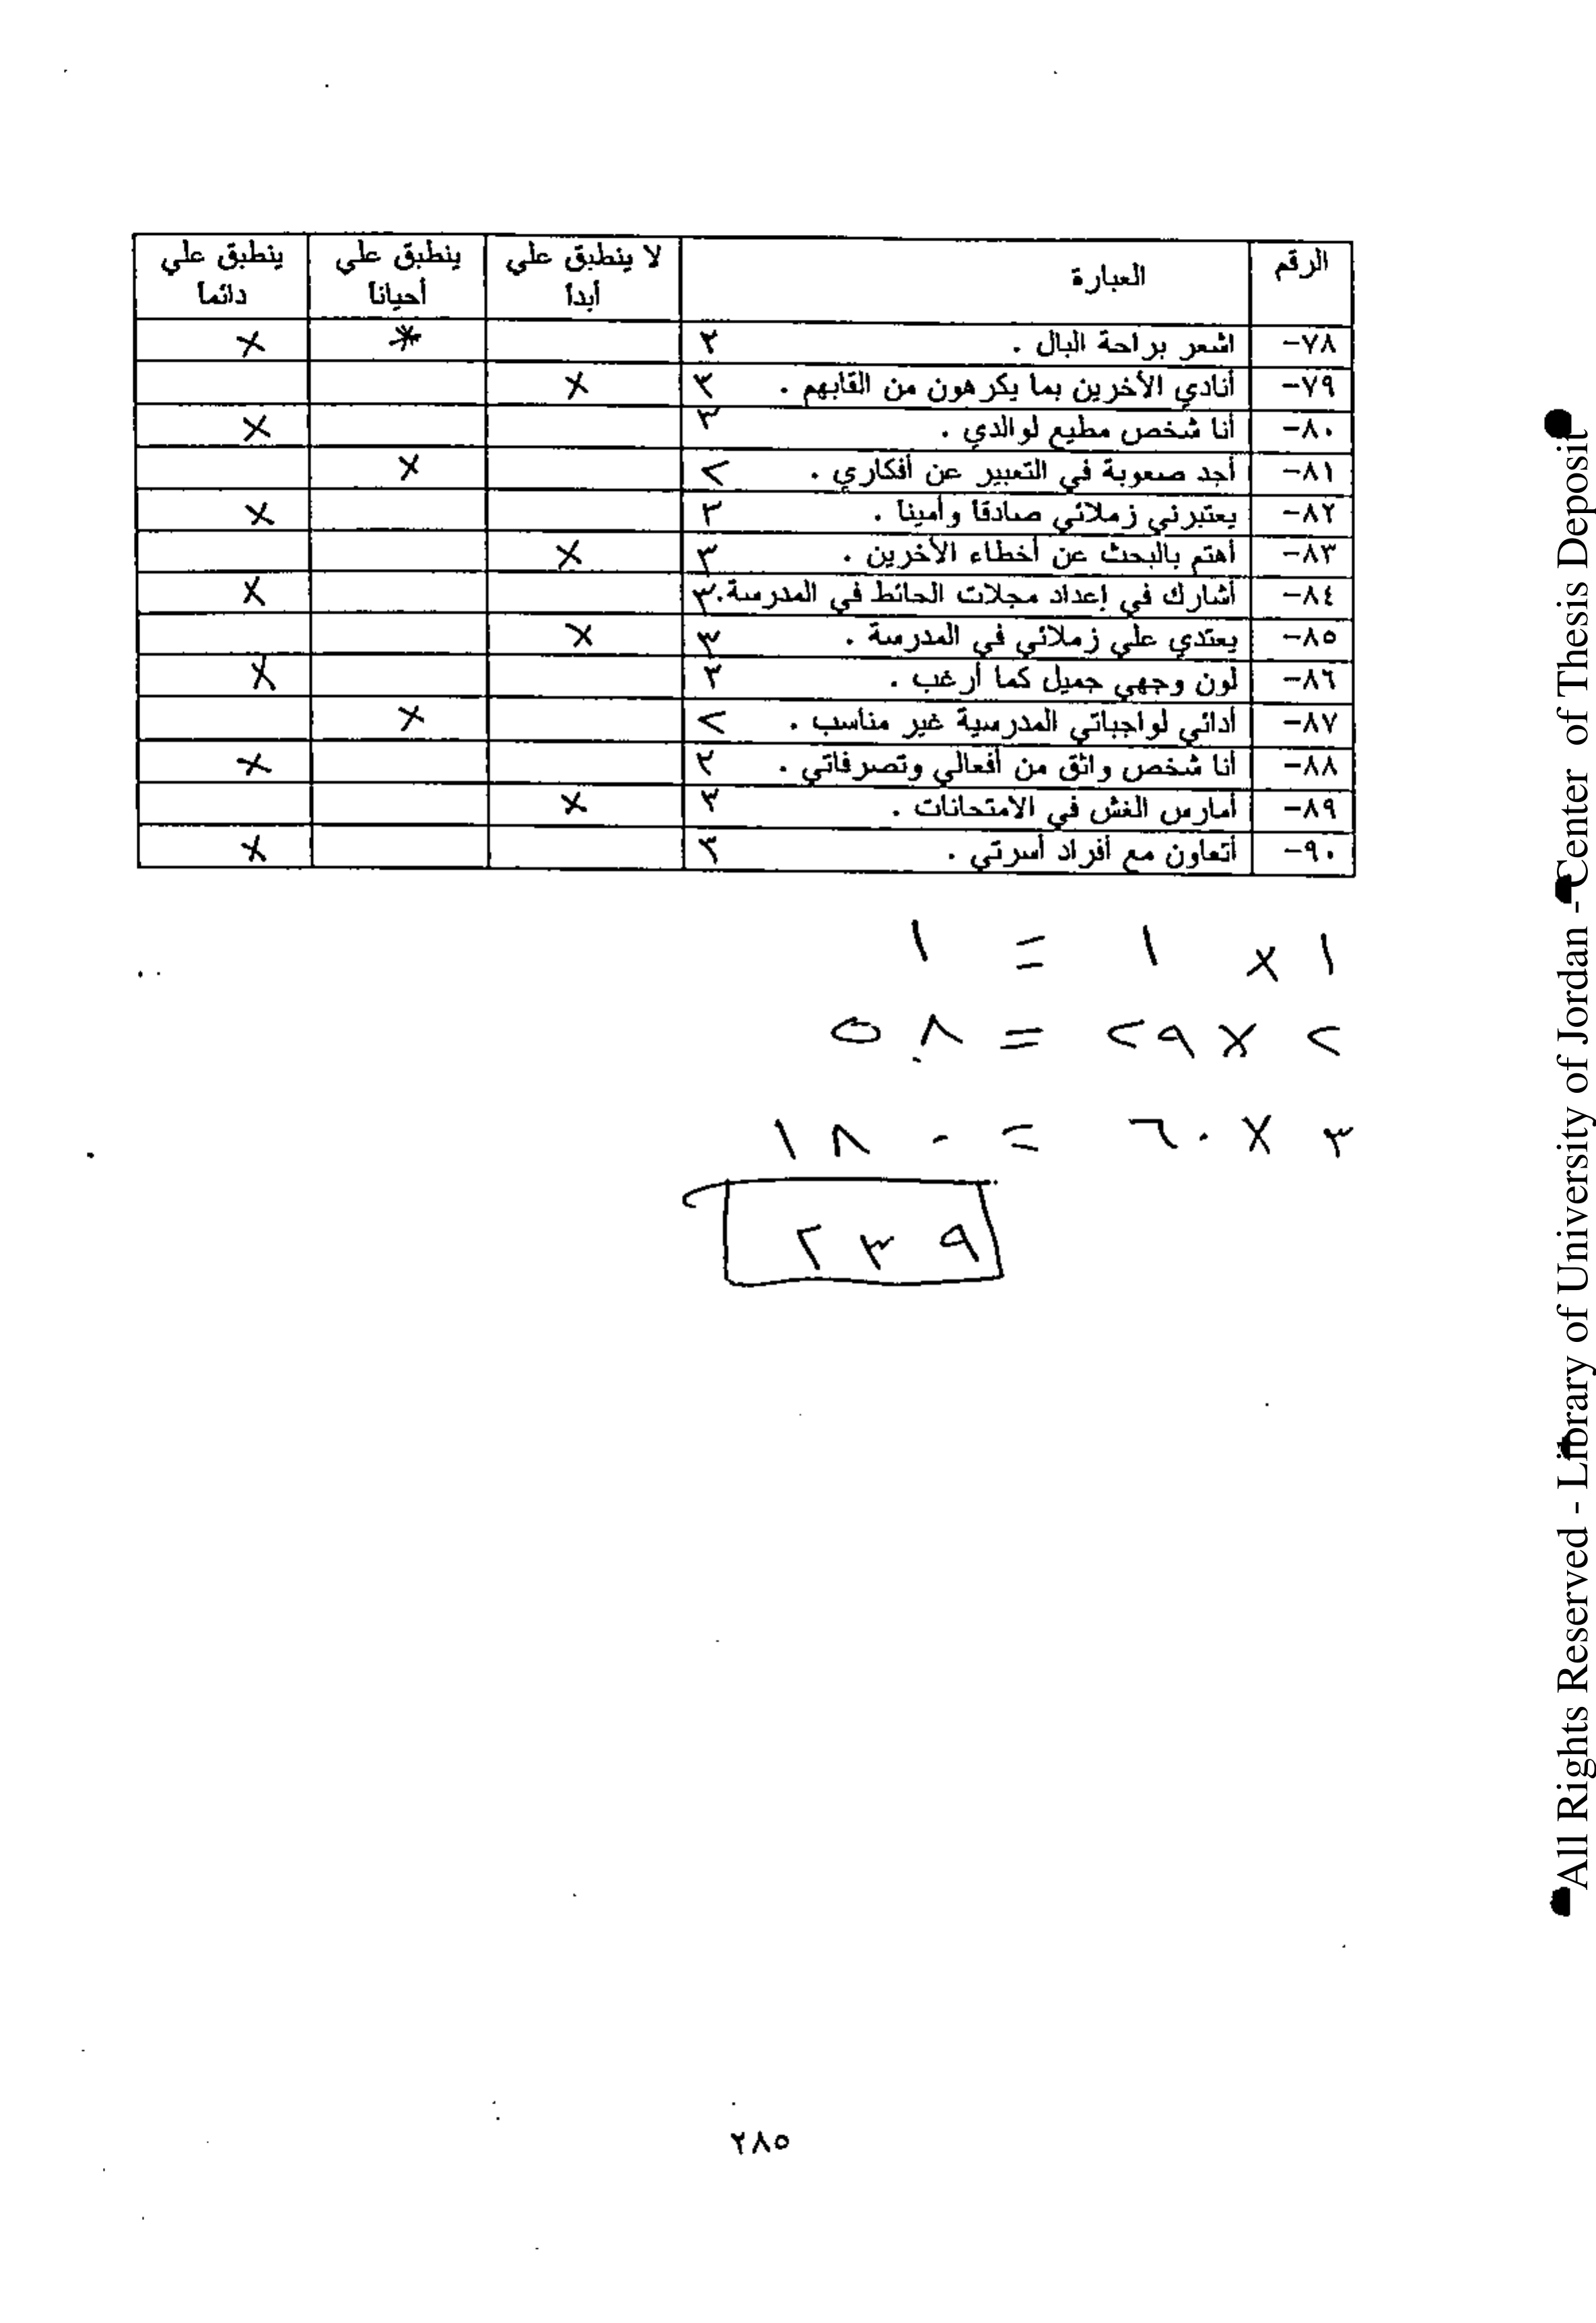 الرقم العبارة لا ينطبق علي أبدا ينطبق علي أحيانا ينطبق علي دائما
٧٨- اشعر براحة البال . ٣ * ×
٧٩- أنادي الأخرين بما يكرهون من القابهم . ٣ ×
٨٠- أنا شخص مطيع لوالدي . ٣ ×
٨١- أجد صعوبة في التعبير عن أفكاري . ٢ ×
٨٢- يعتبرني زملائي صادقا وأمينا . ٣ ×
٨٣- أهتم بالبحث عن أخطاء الأخرين . ٣ ×
٨٤- أشارك في إعداد مجلات الحائط في المدرسة. ٣ ×
٨٥- يعتدي علي زملائي في المدرسة . ٣ ×
٨٦- لون وجهي جميل كما أرغب . ٣ ×
٨٧- أدائي لواجباتي المدرسية غير مناسب . ٢ ×
٨٨- أنا شخص واثق من أفعالي وتصرفاتي . ٣ ×
٨٩- أمارس الغش في الامتحانات . ٣ ×
٩٠- أتعاون مع أفراد أسرتي . ٣ ×
١ × ١ = ١
٢ × ٢٩ = ٥٨
٣ × ٦٠ = ١٨٠
٢٣٩
٢٨٥
All Rights Reserved - Library of University of Jordan - Center of Thesis Deposit